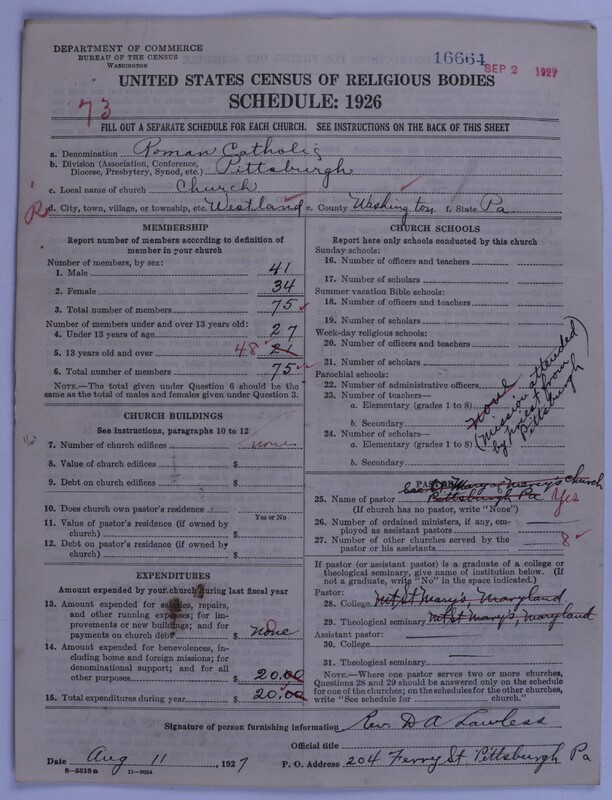 DEPARTMENT OF COMMERCE
BUREAU OF THE CENSUS
WASHINGTON
16664
SEP 2 1927
UNITED STATES CENSUS OF RELIGIOUS BODIES
SCHEDULE: 1926
73
FILL OUT A SEPARATE SCHEDULE FOR EACH CHURCH. SEE INSTRUCTIONS ON THE BACK OF THIS SHEET
a. Denomination Roman Catholic
b. Division (Association, Conference, Diocese, Presbytery, Synod, etc.) Pittsburgh
c. Local name of church Church
R
d. City, town, village, or township, etc. Westland e. County Washington f. State Pa
MEMBERSHIP
Report number of members according to definition of
member in your church
Number of members, by sex:
1. Male 41
2. Female 34
3. Total number of members 75
Number of members under and over 13 years old:
4. Under 13 years of age 27
5. 13 years old and over 48 21
6. Total number of members 75
NOTE.—The total given under Question 6 should be the
same as the total of males and females given under Question 3.
CHURCH BUILDINGS
See instructions, paragraphs 10 to 12
7. Number of church edifices none
8. Value of church edifices $
9. Debt on church edifices $
10. Does church own pastor's residence?
Yes or No
11. Value of pastor's residence (if owned by
church) $
12. Debt on pastor's residence (if owned by
church) $
EXPENDITURES
Amount expended by your church during last fiscal year
13. Amount expended for salaries, repairs,
and other running expenses; for im-
provements or new buildings; and for
payments on church debt $ none
14. Amount expended for benevolences, in-
cluding home and foreign missions; for
denominational support; and for all
other purposes $ 20.00
15. Total expenditures during year $ 20.00
CHURCH SCHOOLS
Report here only schools conducted by this church
Sunday schools:
16. Number of officers and teachers
17. Number of scholars
Summer vacation Bible schools:
18. Number of officers and teachers
19. Number of scholars
Week-day religious schools:
20. Number of officers and teachers
21. Number of scholars
Parochial schools:
22. Number of administrative officers
23. Number of teachers—
a. Elementary (grades 1 to 8)
b. Secondary
24. Number of scholars—
a. Elementary (grades 1 to 8)
b. Secondary
none
(Mission attended)
by priest from
Pittsburgh
PASTOR
See St Mary of Mercy's Church
25. Name of pastor Pittsburgh Pa Yes
(If church has no pastor, write "None")
26. Number of ordained ministers, if any, em-
ployed as assistant pastors
27. Number of other churches served by the
pastor or his assistants 8
If pastor (or assistant pastor) is a graduate of a college or
theological seminary, give name of institution below. (If
not a graduate, write "No" in the space indicated.)
Pastor:
28. College Mt St Mary's, Maryland
29. Theological seminary Mt St Mary's, Maryland
Assistant pastor:
30. College
31. Theological seminary
NOTE.—Where one pastor serves two or more churches,
Questions 28 and 29 should be answered only on the schedule
for one of the churches; on the schedules for the other churches,
write "See schedule for church."
Signature of person furnishing information Rev. D A Lawless
Official title
Date Aug 11, 1927 P. O. Address 204 Ferry St Pittsburgh Pa
8—5518a 11—9054